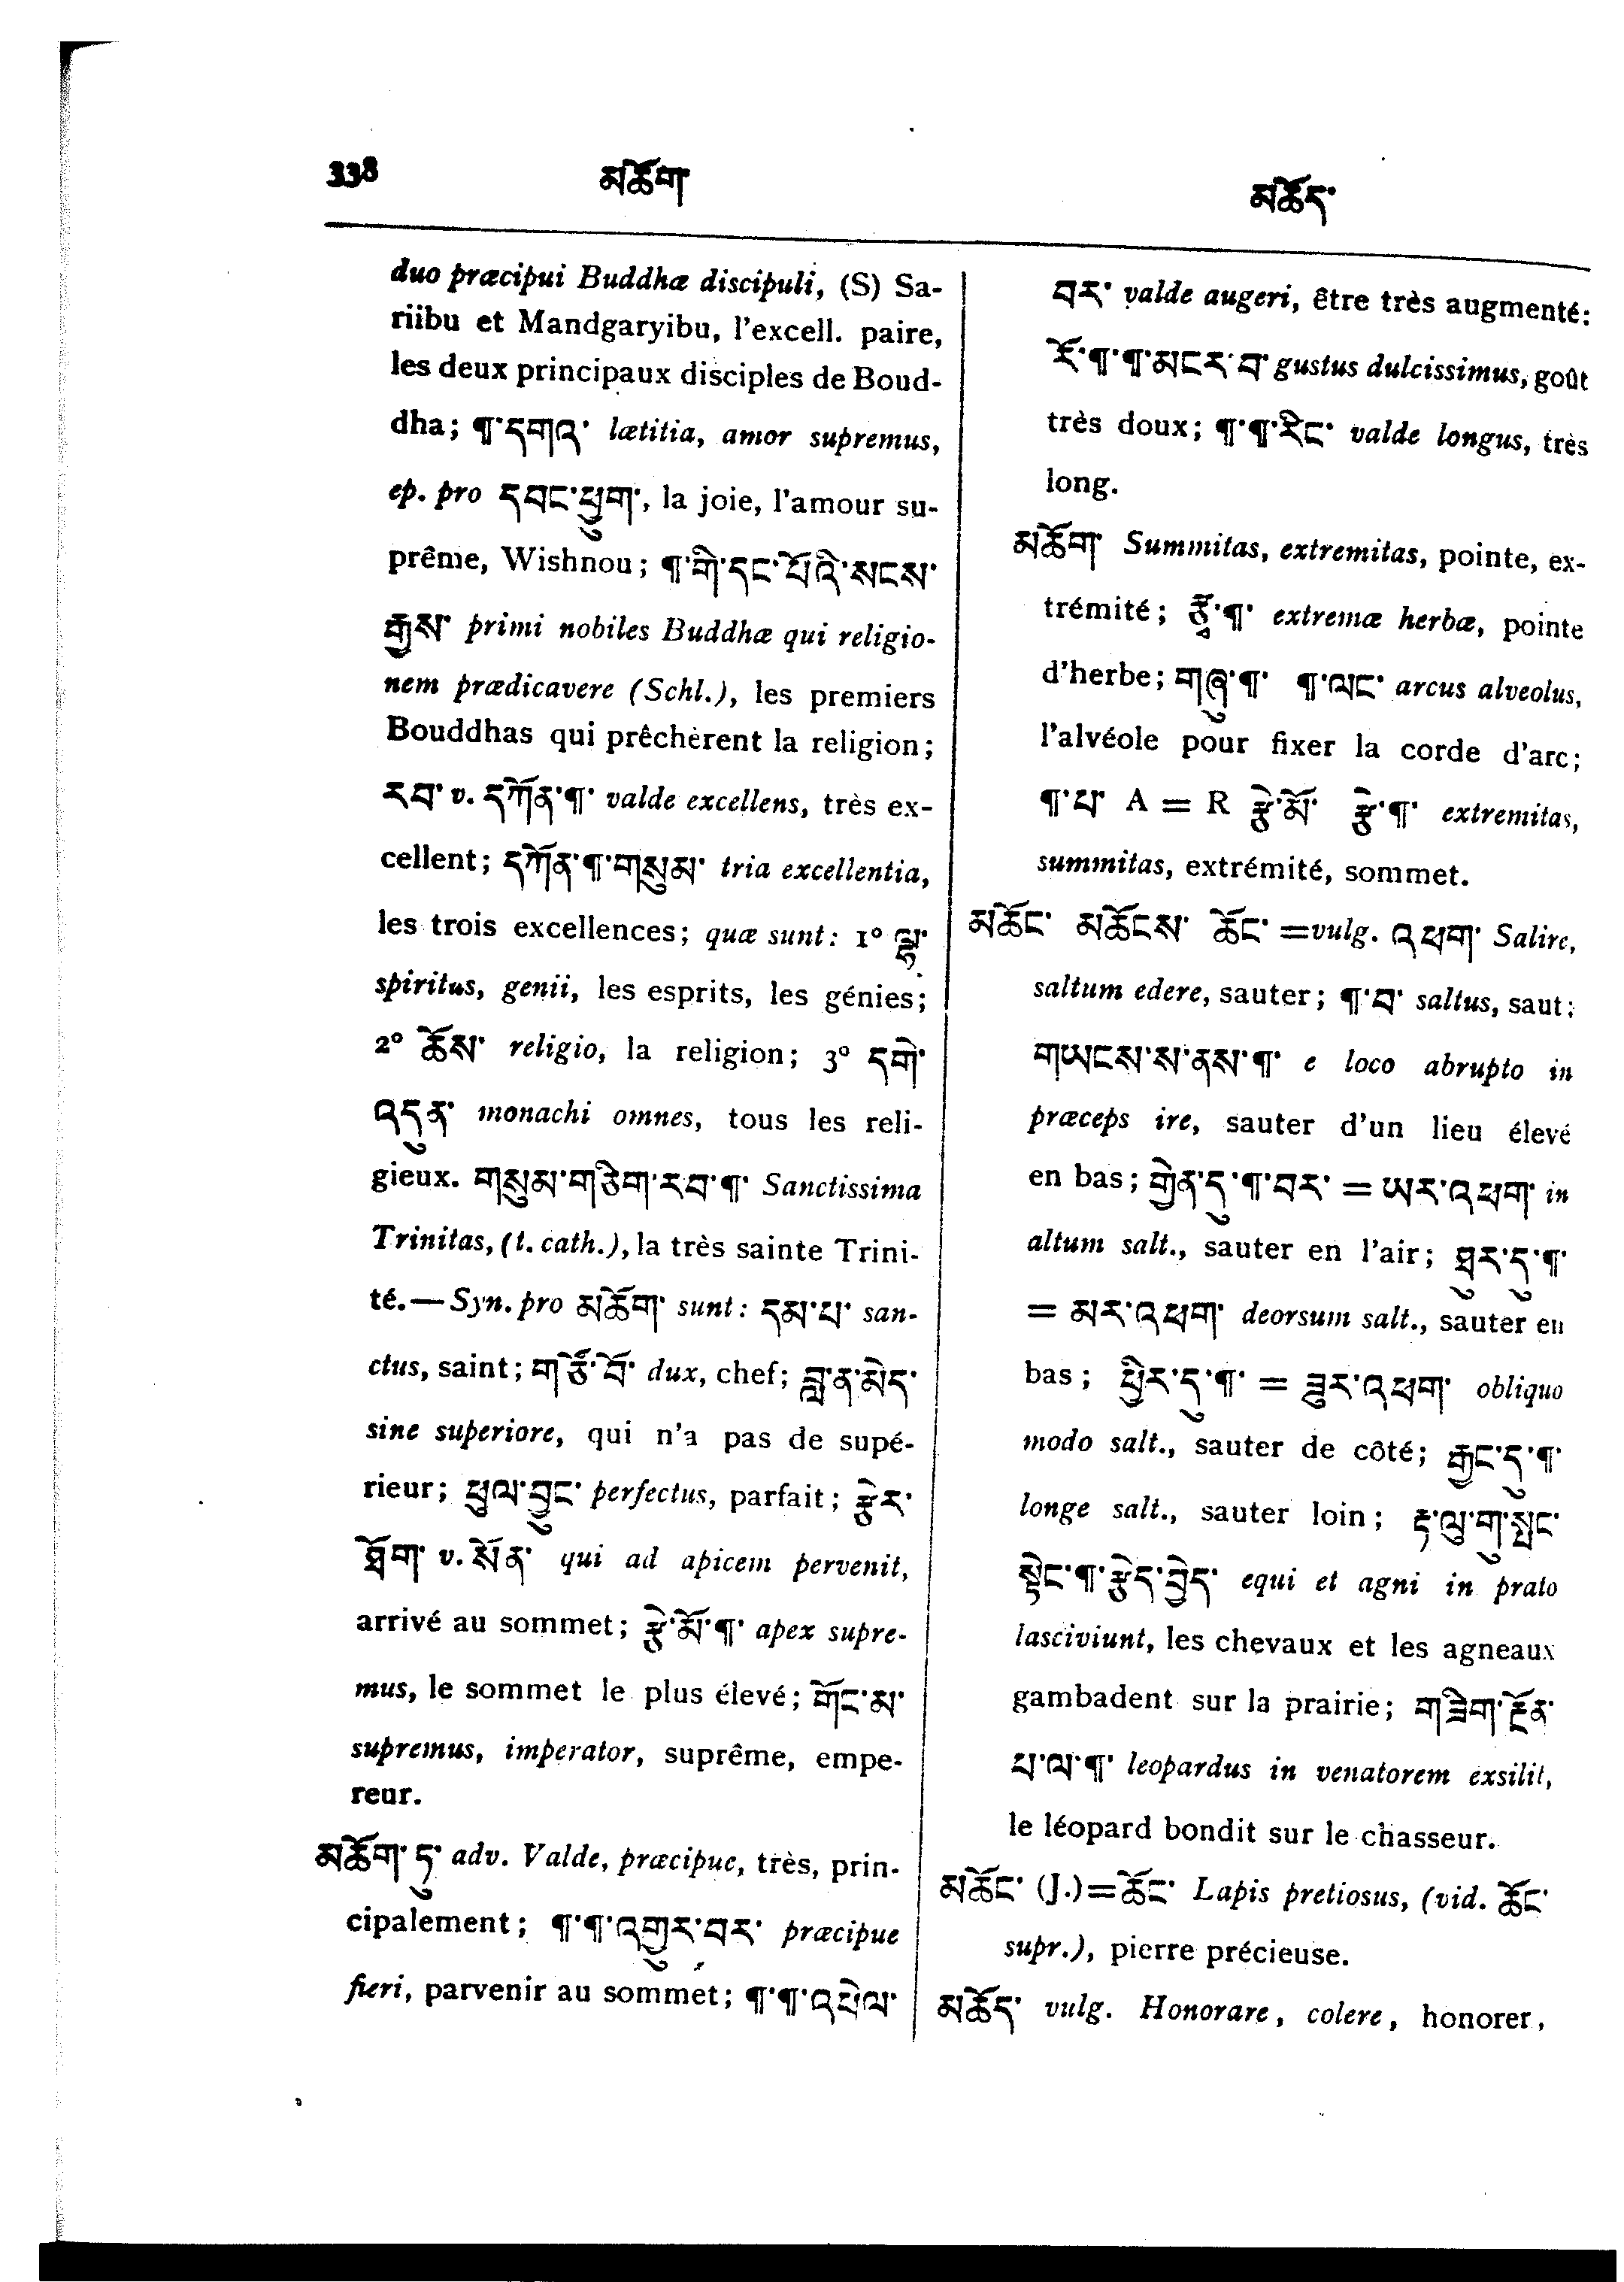 338
མཆོག་
མཆོད་
duo præcipui Buddhæ discipuli, (S) Sa-
riibu et Mandgaryibu, l'excell. paire,
les deux principaux disciples de Boud-
dha; ¶་དགའ་ lætitia, amor supremus,
ep. pro དབང་ཕྱུག་, la joie, l'amour su-
prême, Wishnou; ¶་གི་དང་པོའི་སངས་
རྒྱས་ primi nobiles Buddhæ qui religio-
nem prædicavere (Schl.), les premiers
Bouddhas qui prêchèrent la religion;
རབ་ v. དཀོན་¶་ valde excellens, très ex-
cellent; དཀོན་¶་གསུམ་ tria excellentia,
les trois excellences; quæ sunt: 1º ལྷ་
spiritus, genii, les esprits, les génies;
2º ཆོས་ religio, la religion; 3º དགེ་
འདུན་ monachi omnes, tous les reli-
gieux. གསུམ་གཅིག་རབ་¶་ Sanctissima
Trinitas, (t. cath.), la très sainte Trini-
té.—Syn. pro མཆོག་ sunt: དམ་པ་ san-
ctus, saint; གཙོ་བོ་ dux, chef; བླ་ན་མེད་
sine superiore, qui n'a pas de supé-
rieur; ཕུལ་བྱུང་ perfectus, parfait; རྩེར་
ཐོག་ v. སོན་ qui ad apicem pervenit,
arrivé au sommet; རྩེ་མོ་¶་ apex supre-
mus, le sommet le plus élevé; གོང་མ་
supremus, imperator, suprême, empe-
reur.
མཆོག་ཏུ་ adv. Valde, præcipue, très, prin-
cipalement; ¶་¶་འགྱུར་བར་ præcipue
fieri, parvenir au sommet; ¶་¶་འཕེལ་
བར་ valde augeri, être très augmenté:
རོ་¶་¶་མངར་བ་ gustus dulcissimus, goût
très doux; ¶་¶་རིང་ valde longus, très
long.
མཆོག་ Summitas, extremitas, pointe, ex-
trémité; རྩྭ་¶་ extremæ herbæ, pointe
d'herbe; གཞུ་¶་ ¶་ལང་ arcus alveolus,
l'alvéole pour fixer la corde d'arc;
¶་པ་ A = R རྩེ་མོ་ རྩེ་¶་ extremitas,
summitas, extrémité, sommet.
མཆོང་ མཆོངས་ ཆོང་ =vulg. འཕག་ Salire,
saltum edere, sauter; ¶་བ་ saltus, saut;
གཡངས་ས་ནས་¶་ e loco abrupto in
præceps ire, sauter d'un lieu élevé
en bas; གྱེན་དུ་¶་བར་ = ཡར་འཕག་ in
altum salt., sauter en l'air; ཐུར་དུ་¶་
= མར་འཕག་ deorsum salt., sauter en
bas; ཕྱིར་དུ་¶་ = ཟུར་འཕག་ obliquo
modo salt., sauter de côté; རྒྱང་དུ་¶་
longe salt., sauter loin; རྟ་ལུ་གུ་སྤང་
སྟེང་¶་རྩེད་བྱེད་ equi et agni in prato
lasciviunt, les chevaux et les agneaux
gambadent sur la prairie; གཟིག་རྔོན་
པ་ལ་¶་ leopardus in venatorem exsilit,
le léopard bondit sur le chasseur.
མཆོང་ (J.)=ཆོང་ Lapis pretiosus, (vid. ཆོང་
supr.), pierre précieuse.
མཆོད་ vulg. Honorare, colere, honorer,